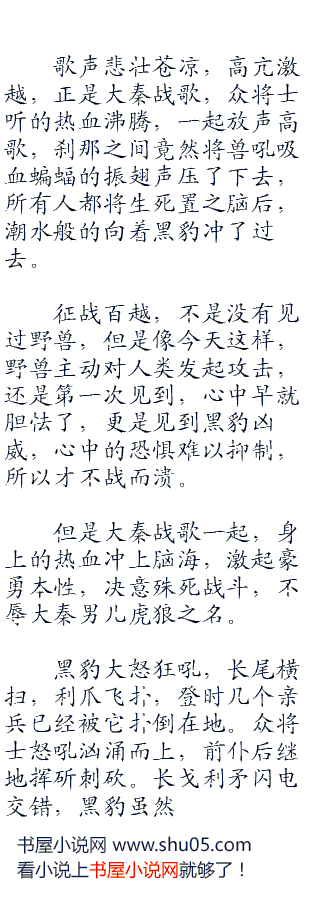 歌声悲壮苍凉，高亢激
越，正是大秦战歌，众将士
听的热血沸腾，一起放声高
歌，刹那之间竟然将兽吼吸
血蝙蝠的振翅声压了下去，
所有人都将生死置之脑后，
潮水般的向着黑豹冲了过
去。
征战百越，不是没有见
过野兽，但是像今天这样，
野兽主动对人类发起攻击，
还是第一次见到，心中早就
胆怯了，更是见到黑豹凶
威，心中的恐惧难以抑制，
所以才不战而溃。
但是大秦战歌一起，身
上的热血冲上脑海，激起豪
勇本性，决意殊死战斗，不
辱大秦男儿虎狼之名。
黑豹大怒狂吼，长尾横
扫，利爪飞扑，登时几个亲
兵已经被它扑倒在地。众将
士怒吼汹涌而上，前仆后继
地挥斫刺砍。长戈利矛闪电
交错，黑豹虽然
书屋小说网 www.shu05.com
看小说上书屋小说网就够了！